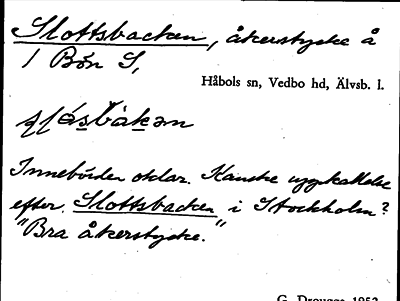 Slottsbacken, åkerstycke å
1 Bön S,
Håbols sn, Vedbo hd, Älvsb. l.
Innebörden oklar. Kanske uppkallelse
efter Slottsbacken i Stockholm?
"Bra åkerstycke."